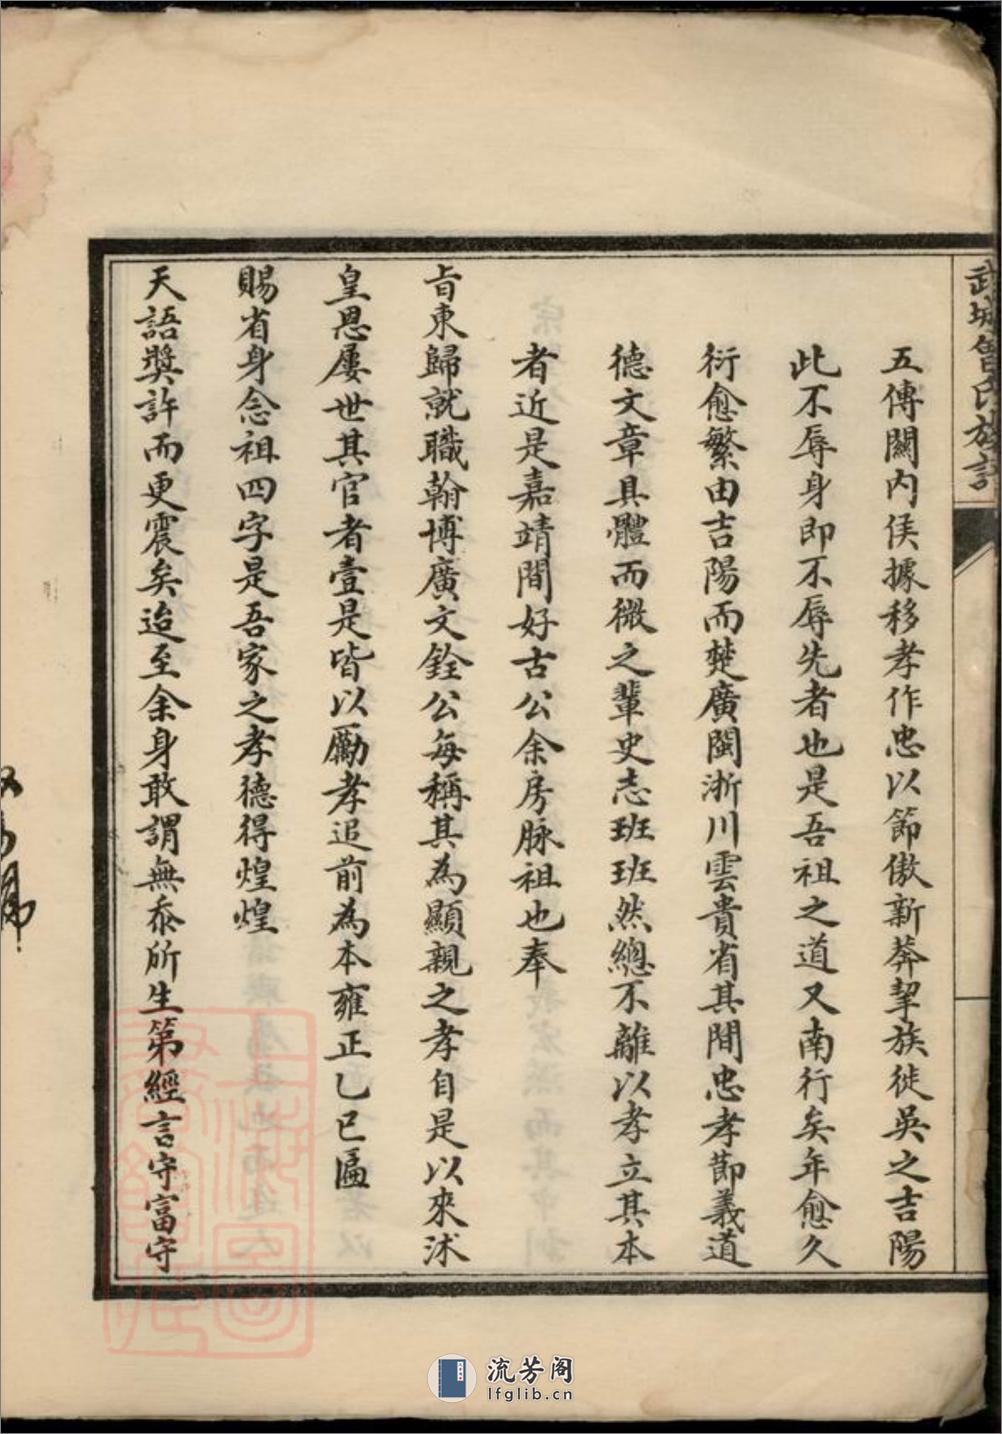 武城曾氏族譜
五傳關內侯據移孝作忠以節傲新莽挈族徙吳之吉陽
此不辱身即不辱先者也是吾祖之道又南行矣年愈久
衍愈繁由吉陽而楚廣閩浙川雲貴省其間忠孝節義道
德文章具體而微之輩史志班班然總不離以孝立其本
者近是嘉靖間好古公余房脉祖也奉
旨東歸就職翰博廣文銓公每稱其為顯親之孝自是以來沭
皇恩屢世其官者壹是皆以勵孝追前為本雍正乙巳匾
賜省身念祖四字是吾家之孝德得煌煌
天語獎許而更震矣迨至余身敢謂無忝所生第經言守富守
流芳阁
lfglib.cn